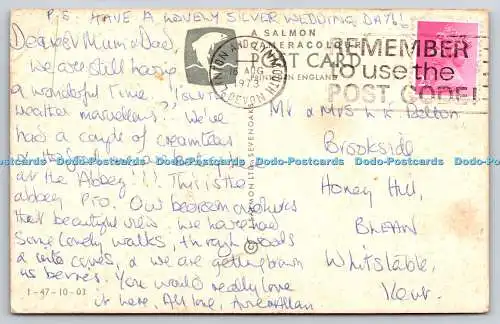 P.S. HAVE A LOVELY SILVER WEDDING DAY!!
Dearest Mum & Dad,
We are still having
a wonderful time. Isn't the
weather marvellous? We've
had a couple of creamteas
at the Abbey!!! This is the
abbey P.T.O. Our bedroom overlooks
that beautiful view. We have had
some lovely walks, through woods
& into coves, & we are getting brown
as berries. You would really love
it here. All love, Anne & Allan
1-47-10-03
A SALMON
CAMERACOLOUR
POST CARD
PRINTED IN ENGLAND
LYNTON AND LYNMOUTH
AUG
1973
DEVON
REMEMBER
to use the
POST CODE!
© J. SALMON LTD., SEVENOAKS
Mr & Mrs L K Dolton
Brookside
Honey Hill,
BLEAN
Whitstable,
Kent.
Dodo-Postcards Dodo-Postcards Dodo-Postcards Dodo-Postcards Dodo-Postcards